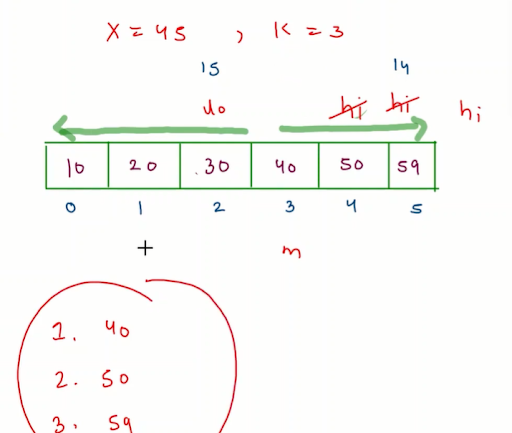 X = 45 , K = 3
15 14
lo hi hi hi
10 20 30 40 50 59
0 1 2 3 4 5
m
1. 40
2. 50
3. 59